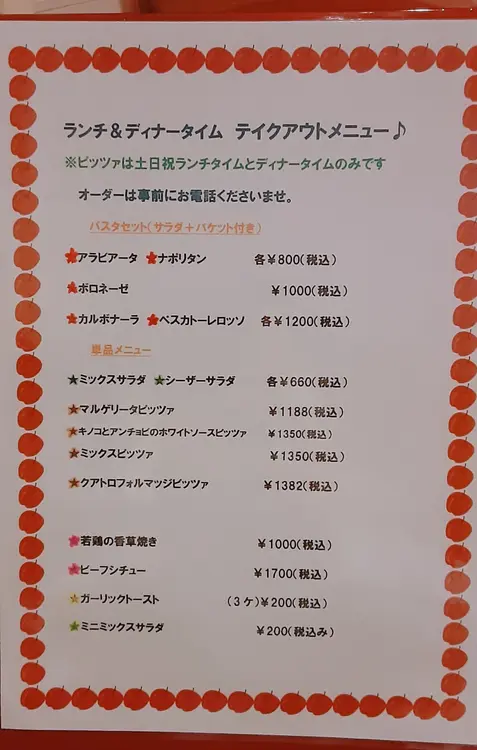 ランチ&ディナータイム テイクアウトメニュー♪
※ピッツァは土日祝ランチタイムとディナータイムのみです
オーダーは事前にお電話くださいませ。
パスタセット(サラダ+バケット付き)
★アラビアータ ★ナポリタン 各¥800(税込)
★ボロネーゼ ¥1000(税込)
★カルボナーラ ★ペスカトーレロッソ 各¥1200(税込)
単品メニュー
★ミックスサラダ ★シーザーサラダ 各¥660(税込)
★マルゲリータピッツァ ¥1188(税込)
★キノコとアンチョビのホワイトソースピッツァ ¥1350(税込)
★ミックスピッツァ ¥1350(税込)
★クアトロフォルマッジピッツァ ¥1382(税込)
★若鶏の香草焼き ¥1000(税込)
★ビーフシチュー ¥1700(税込)
★ガーリックトースト (3ケ)¥200(税込)
★ミニミックスサラダ ¥200(税込み)